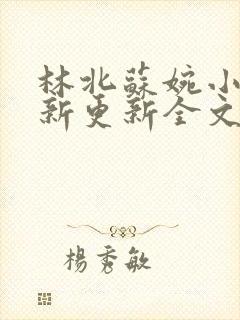 林北蘇婉小
新更新全文
楊秀敏